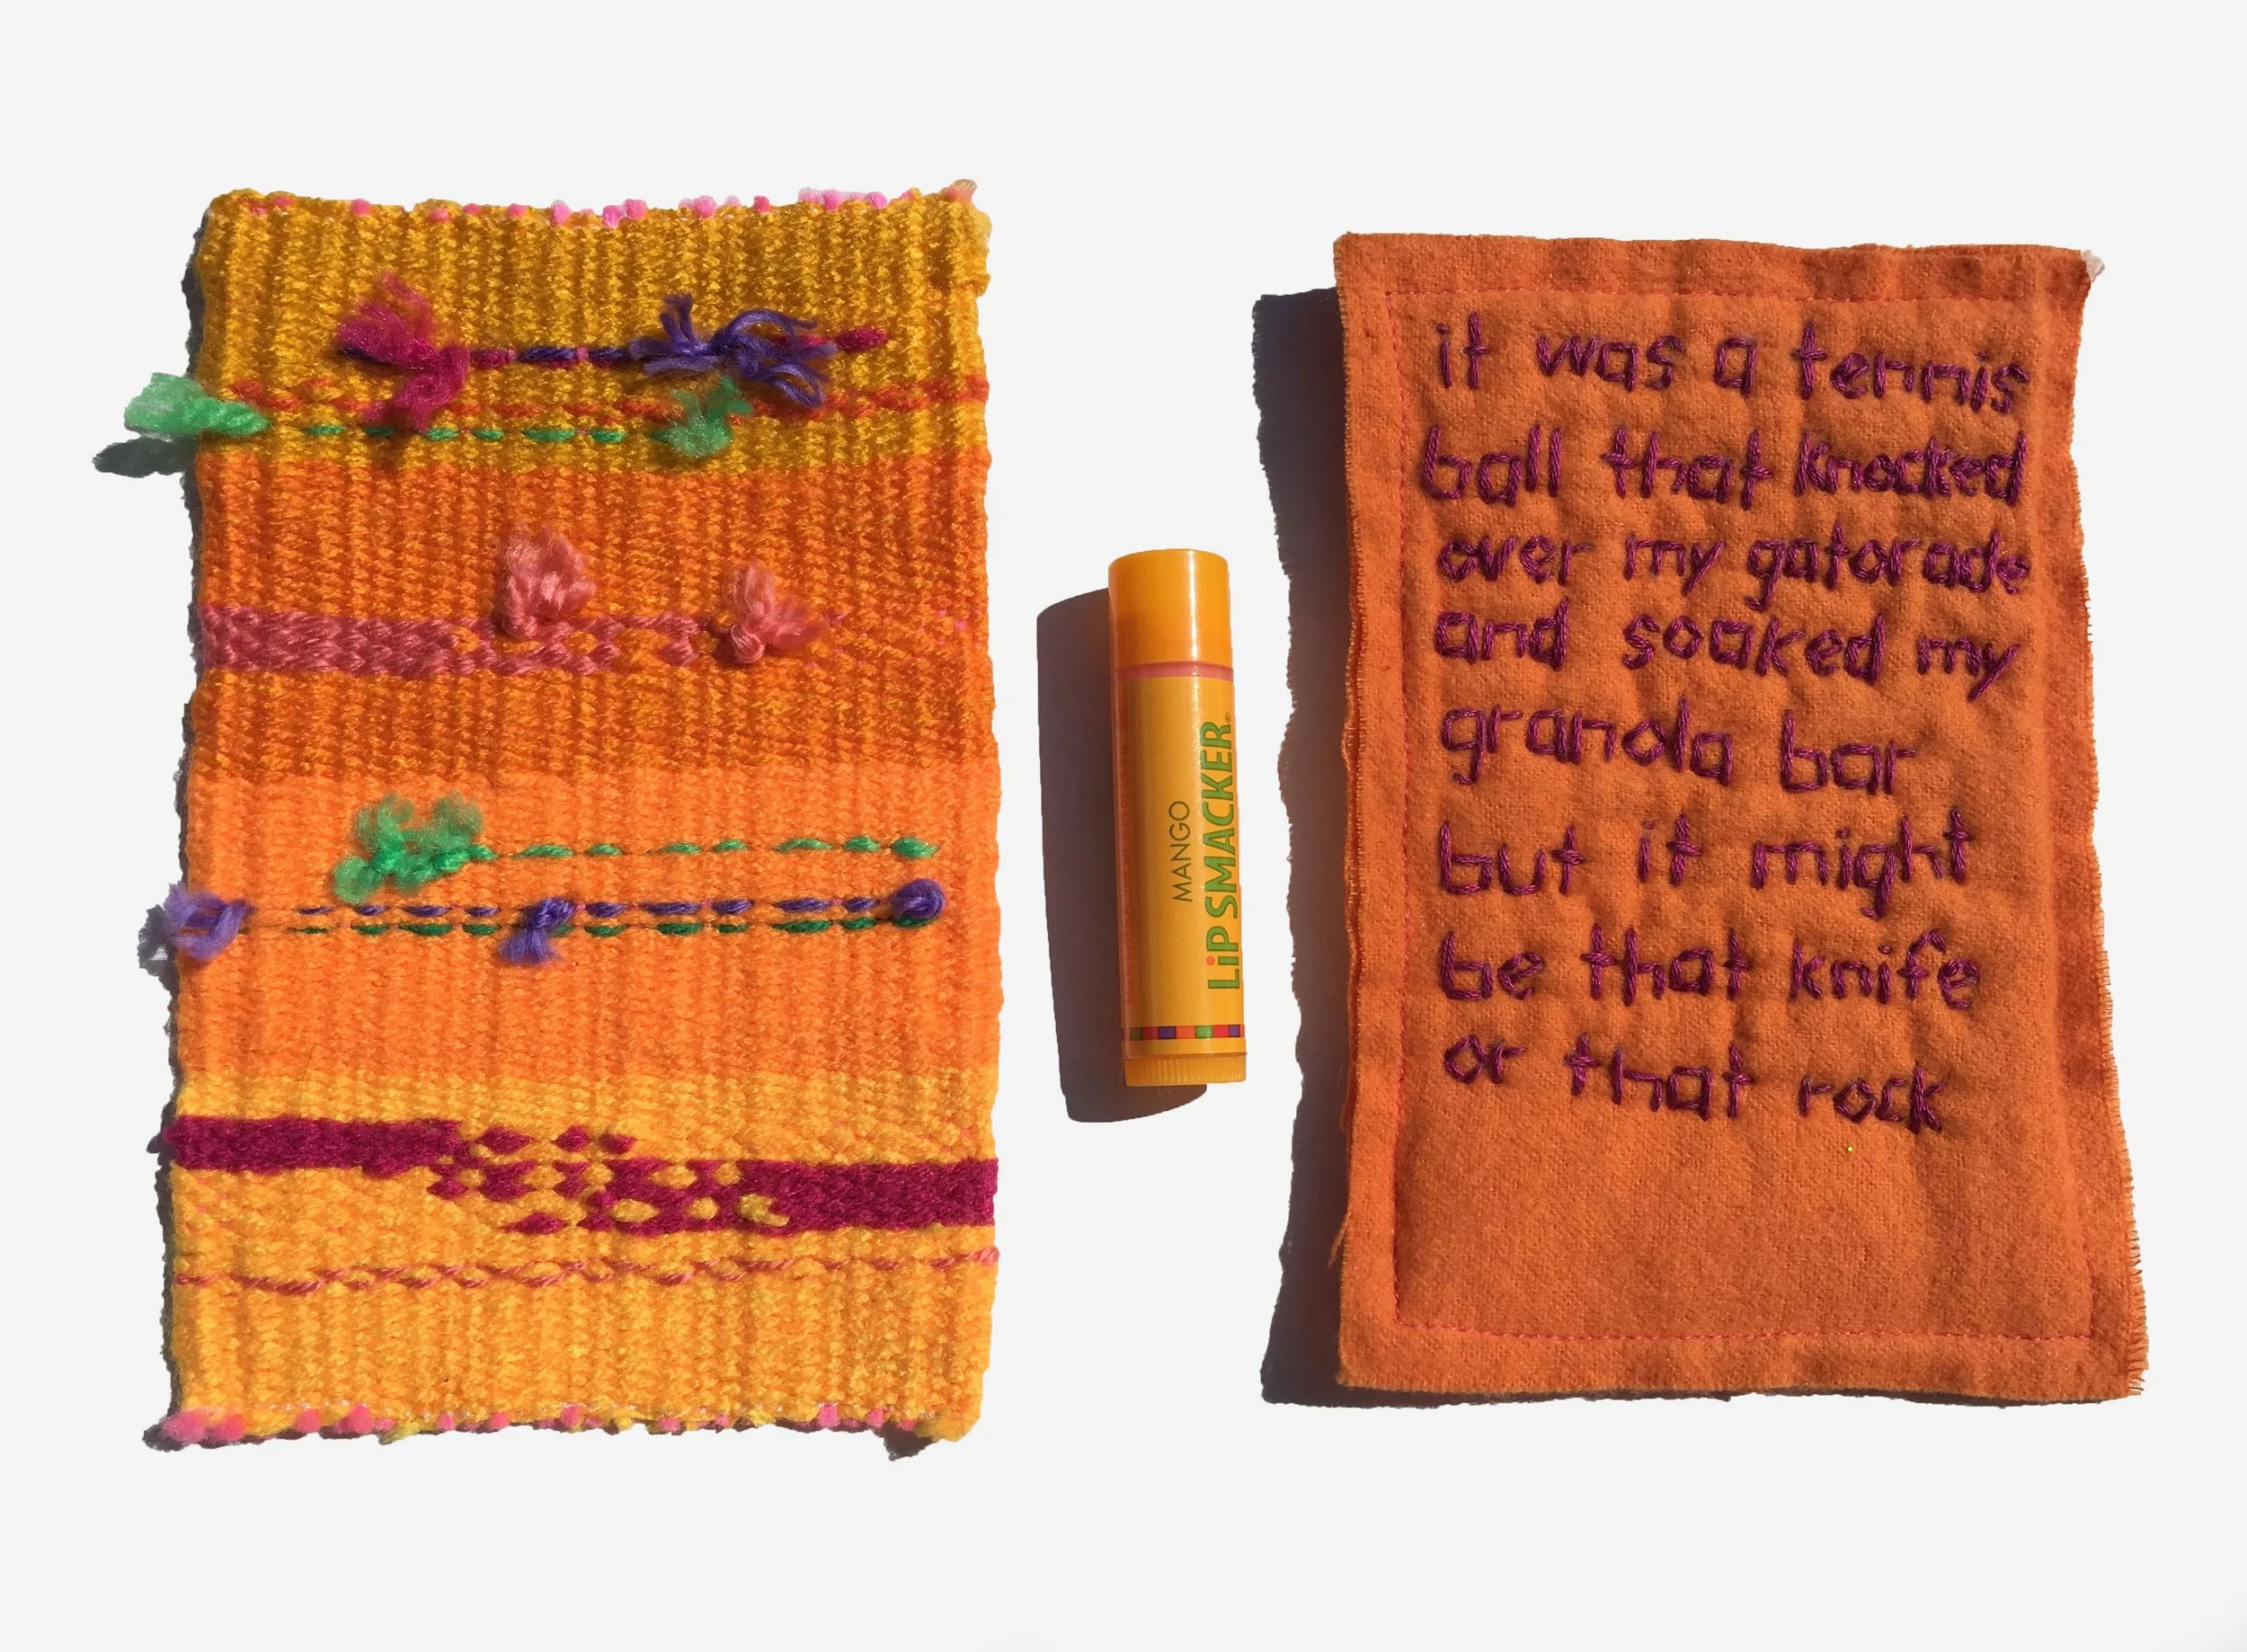 MANGO
LiP SMACKER®
it was a tennis
ball that knocked
over my gatorade
and soaked my
granola bar
but it might
be that knife
or that rock